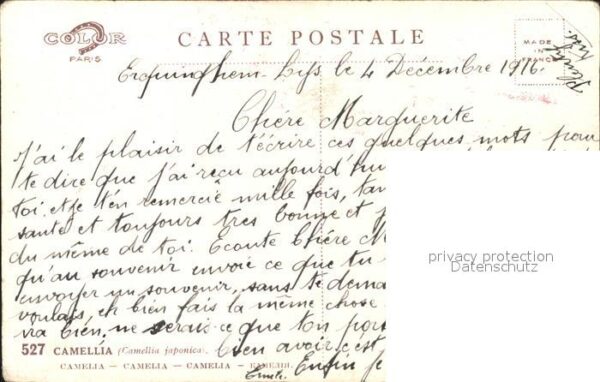 COLOR
PARIS
CARTE POSTALE
MADE
IN
FRANCE
Erquinghem-Lys, le 4 Décembre 1916.
Chére Marguerite
J'ai le plaisir de t'écrire ces quelques mots pour
te dire que j'ai reçu aujourd'hui
toi. et je t'en remercie mille fois,
santé et toujours tres bonne et
du même de toi. Ecoute Chére M
qu'au souvenir envoie ce que tu
envoyer un souvenir, sans te dema
voulais, eh bien fais la même chose
ra bien, ne serais-ce que ton por
527 CAMELLIA (Camellia japonica). bien avoir c'est
CAMELIA — CAMELIA — CAMELIA —
Enfin je
privacy protection
Datenschutz